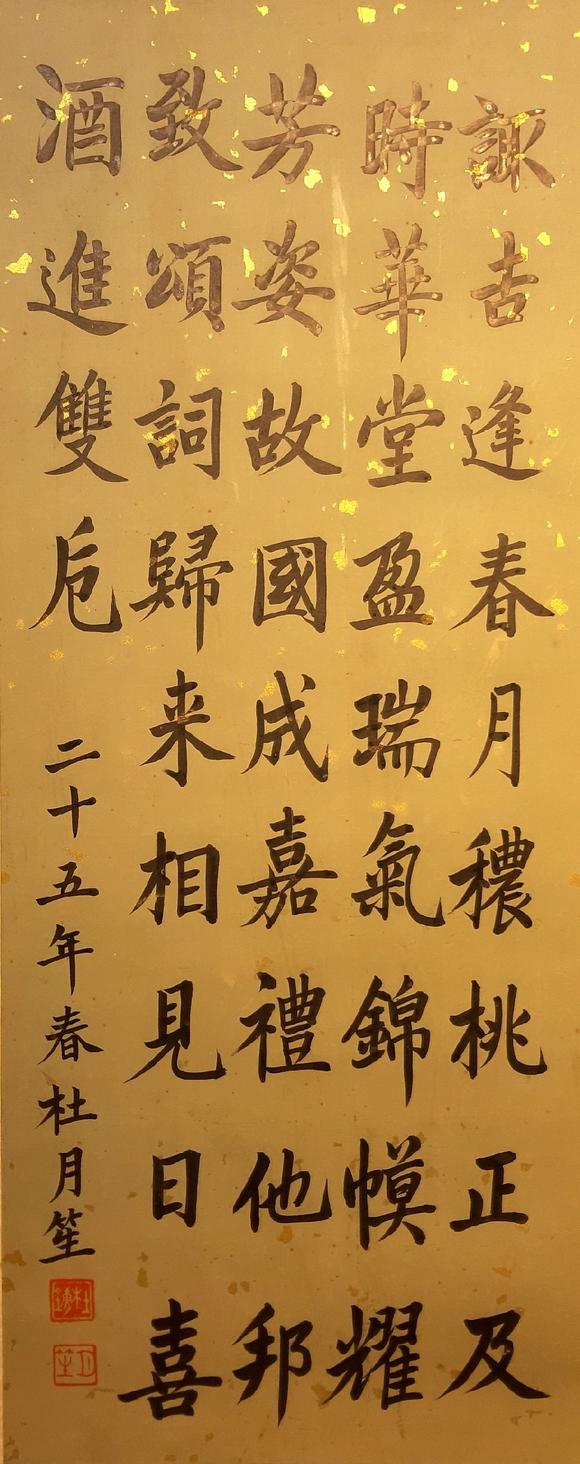 諏吉逢春月穠桃正及
時華堂盈瑞氣錦幙耀
芳姿故國成嘉禮他邦
致頌詞歸来相見日喜
酒進雙卮
二十五年春杜月笙
杜鏞
月笙